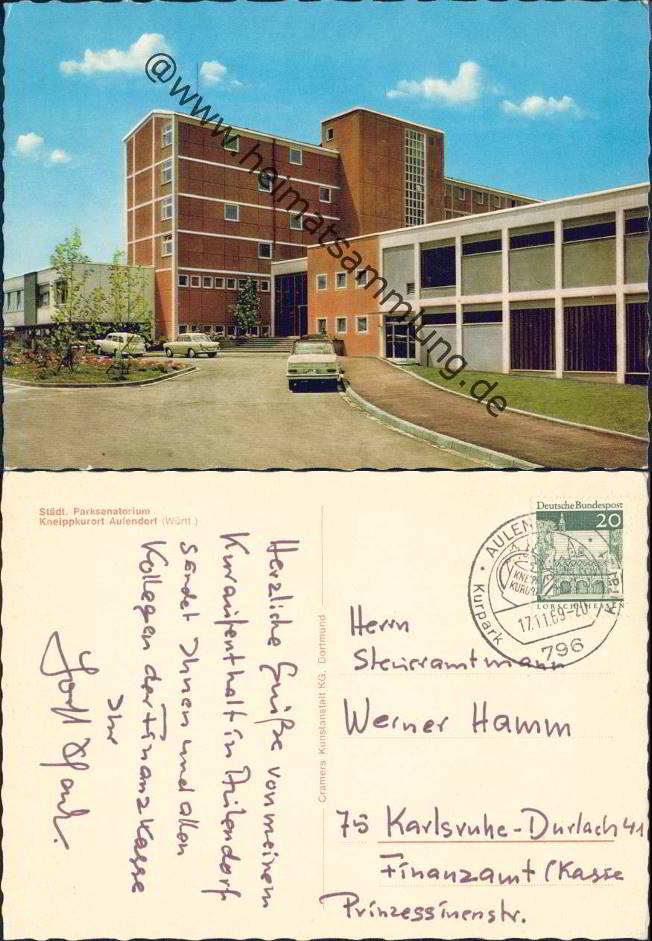 @www.heimatsammlung.de
Städt. Parksenatorium
Kneippkurort Aulendorf (Württ.)
Herzliche Grüße von meinem
Kuraufenthalt in Aulendorf
sendet Ihnen und allen
Kollegen der Finanzkasse
Ihr
Cramers Kunstanstalt KG, Dortmund
Deutsche Bundespost
20
LORSCH/HESSEN
Kurpark
17.11.69-20
796
Herrn
Steueramtmann
Werner Hamm
75 Karlsruhe-Durlach 41
Finanzamt/Kasse
Prinzessinenstr.